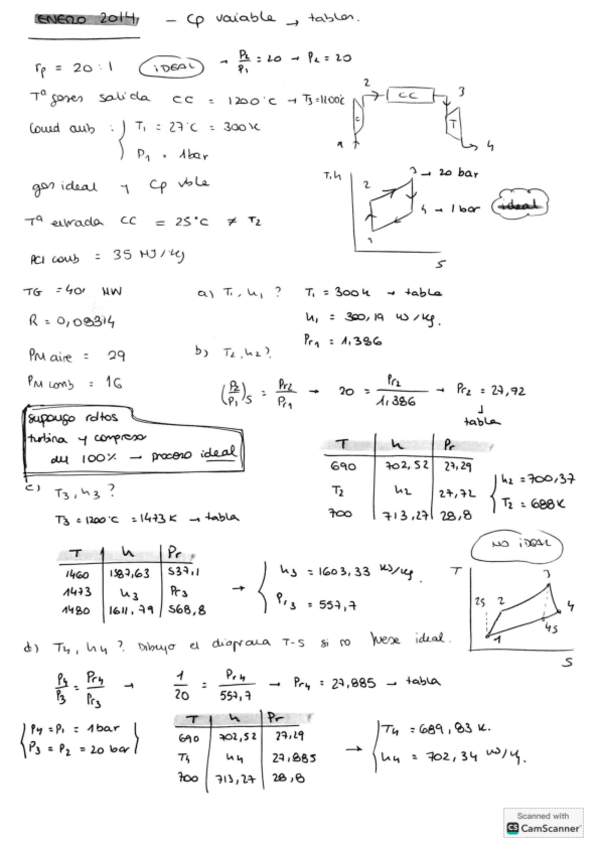 ENERO 2014 – Cp vaiable → tablas.
rp = 20:1 (iDEAL) → P2/P1 = 20 → P2 = 20
Tª gases salida CC = 1200ºC → T3 = 1200ºC
Cond amb : { T1 = 27ºC = 300K
P1 = 1bar
gas ideal y Cp vble
Tª entrada CC = 25ºC ≠ T2
PCI comb = 35 MJ/kg
TG = 40 MW
R = 0,08314
PM aire = 29
PM comb = 16
supongo rdtos
turbina y compresor
del 100% → proceso ideal
1 2 3 4 C CC T
T, h 1 2 3 → 20 bar
4 → 1 bar
ideal
S
a) T1, h1 ? T1 = 300K → tabla
h1 = 300,19 kJ/kg.
Pr1 = 1,386
b) T2, h2?
(P2/P1)s = Pr2/Pr1 → 20 = Pr2/1,386 → Pr2 = 27,72
↓
tabla
T | h | Pr
690 | 702,52 | 27,29
T2 | h2 | 27,72
700 | 713,27 | 28,8
{ h2 = 700,37
T2 = 688K
c) T3, h3 ?
T3 = 1200ºC = 1473K → tabla
T | h | Pr
1460 | 1587,63 | 537,1
1473 | h3 | Pr3
1480 | 1611,79 | 568,8
→ { h3 = 1603,33 kJ/kg.
Pr3 = 557,7
NO iDEAL
T 2s 2 3 4 4s 1 S
d) T4, h4 ? Dibujo el diagrama T-S si no fuese ideal.
P4/P3 = Pr4/Pr3 → 1/20 = Pr4/557,7 → Pr4 = 27,885 → tabla
{ P4 = P1 = 1bar
P3 = P2 = 20 bar }
T | h | Pr
690 | 702,52 | 27,29
T4 | h4 | 27,885
700 | 713,27 | 28,8
→ { T4 = 689,83 K.
h4 = 702,34 kJ/kg.
Scanned with
CS CamScanner